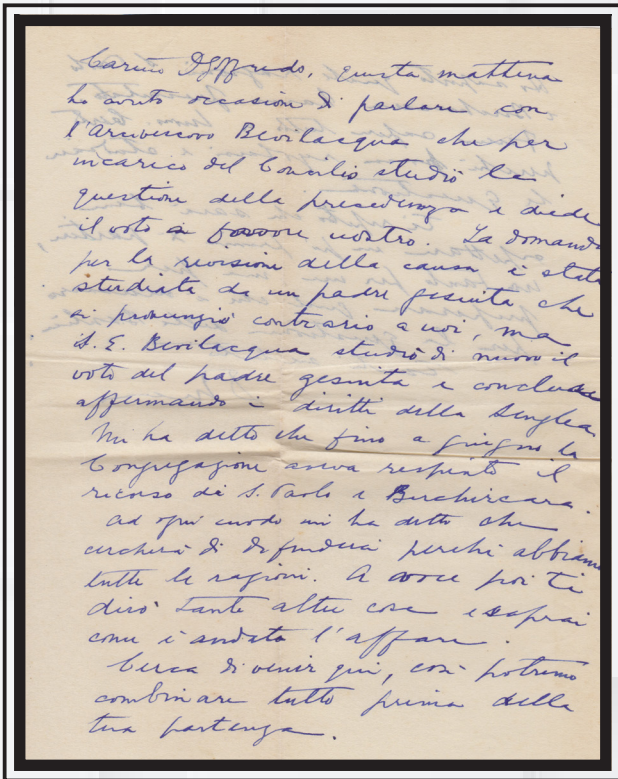 Carino D. Goffredo, questa mattina
ho avuto occasione di parlare con
l'Arcivescovo Bevilacqua che per
incarico del Concilio studiò la
questione della precedenza e diede
il voto a favore nostro. La domanda
per la revisione della causa è stata
studiata da un padre gesuita che
si pronunziò contrario a noi, ma
S. E. Bevilacqua studiò di nuovo il
voto del padre gesuita e concluse
affermando i diritti della Senglea.
Mi ha detto che fino a giugno la
Congregazione aveva respinto il
ricorso di S. Paolo e Birchircara.
Ad ogni modo mi ha detto che
cercherà di difenderci perchè abbiamo
tutte le ragioni. A voce poi ti
dirò tante altre cose e saprai
come è andato l'affare.
Cerca di venir qui, così potremo
combinare tutto prima della
tua partenza.